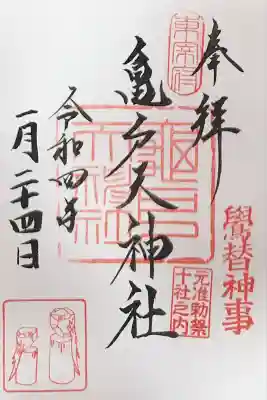 奉拝
東宰府
亀戸天神社
亀戸天神社
鷽替神事
元准勅祭
十社之内
令和四年
一月二十四日